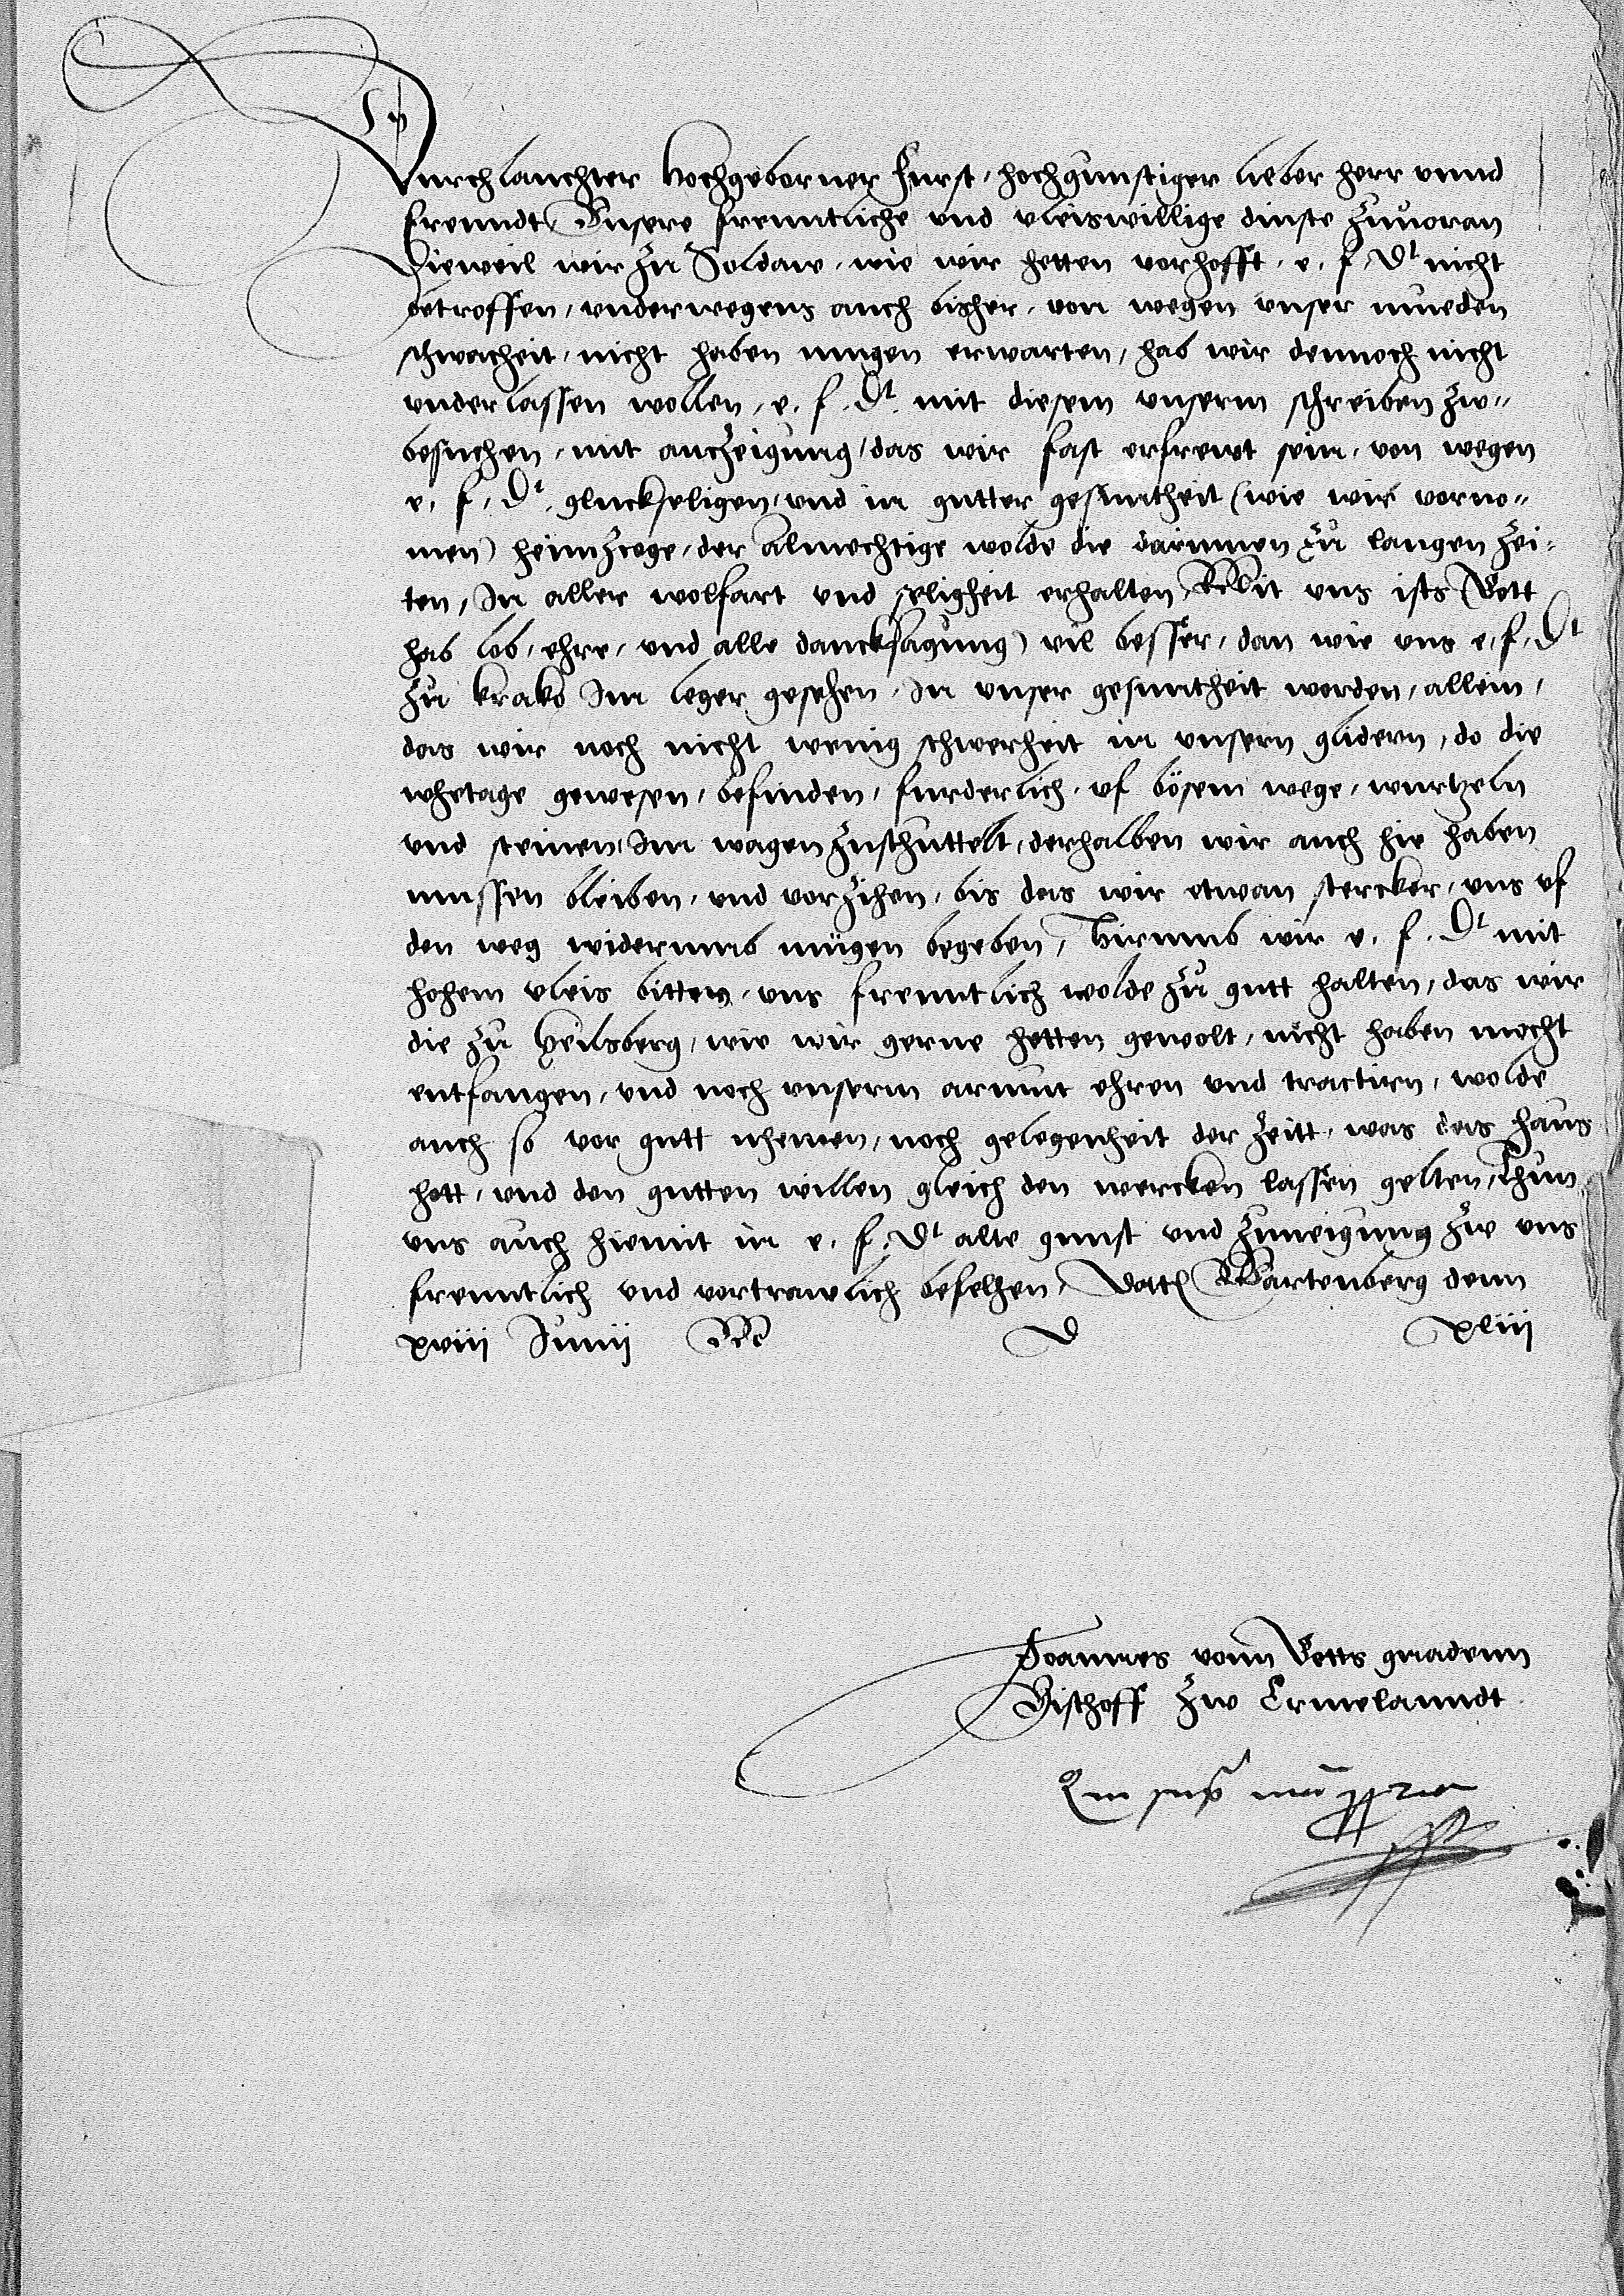 Durchlauchter Hochgeborner Furst, hochgunstiger lieber herr unnd
freundt, Unsere freuntliche und vleiswillige dinste zuvoran
Dieweil wir zu Soldaw, wie wir hetten vorhofft, e. f. Dt nicht
betroffen, underwegens auch bisher, von wegen unser mueden
schwacheit, nicht haben mugen erwarten, hab wir dennoch nicht
underlassen wollen, e. f. Dt. mit diesem unserm schreiben zw„
besuchen, mit anczeigung, das wir fast erfrewt sein, von wegen
e. f. Dt. gluckseligen, und in gutter gesuntheit (wie wir vorno„
men) heimzoge, der Almechtige wolde die darinnen zu langen zei„
ten, In aller wolfart und seligheit erhalten, Mit uns ists (Gott
hab lob, ehre, und alle dancksagung) vil besser, dan wie uns e. f. Dt
zu krako Im leger gesehen, In unser gesuntheit worden, allein,
das wir noch nicht wenig schwerheit in unsern glidern, do die
whetage gewesen, befinden, furderlich, uf bösem wege, wurtzeln
und steinen, Im wagen zuschuttelt, derhalben wir auch hie haben
mussen bleiben, und vorzihen, bis das wir etwan stercker, uns uf
den weg widerumb mügen begeben, Hirumb wir e. f. Dt mit
hohem vleis bitten, uns freuntlich wolde zu gutt halten, das wir
die zu Heilsberg, wie wir gerne hetten gewolt, nicht haben mocht
entfangen, und noch unserm armut ehren und tractirn, wolde
auch so vor gutt nhemen, noch gelegenheit der zeitt, was das haus
hott, und den gutten willen gleich den wercken lassen gelten, Thun
uns auch hiemit in e. f. Dt alte gunst und zuneigung zw uns
freuntlich und vortrawlich befelhen, Dat Wartenberg denn
xviii Junii M D xliii
Joannes vonn Gotts gnadenn
Bischoff zw Ermelanndt